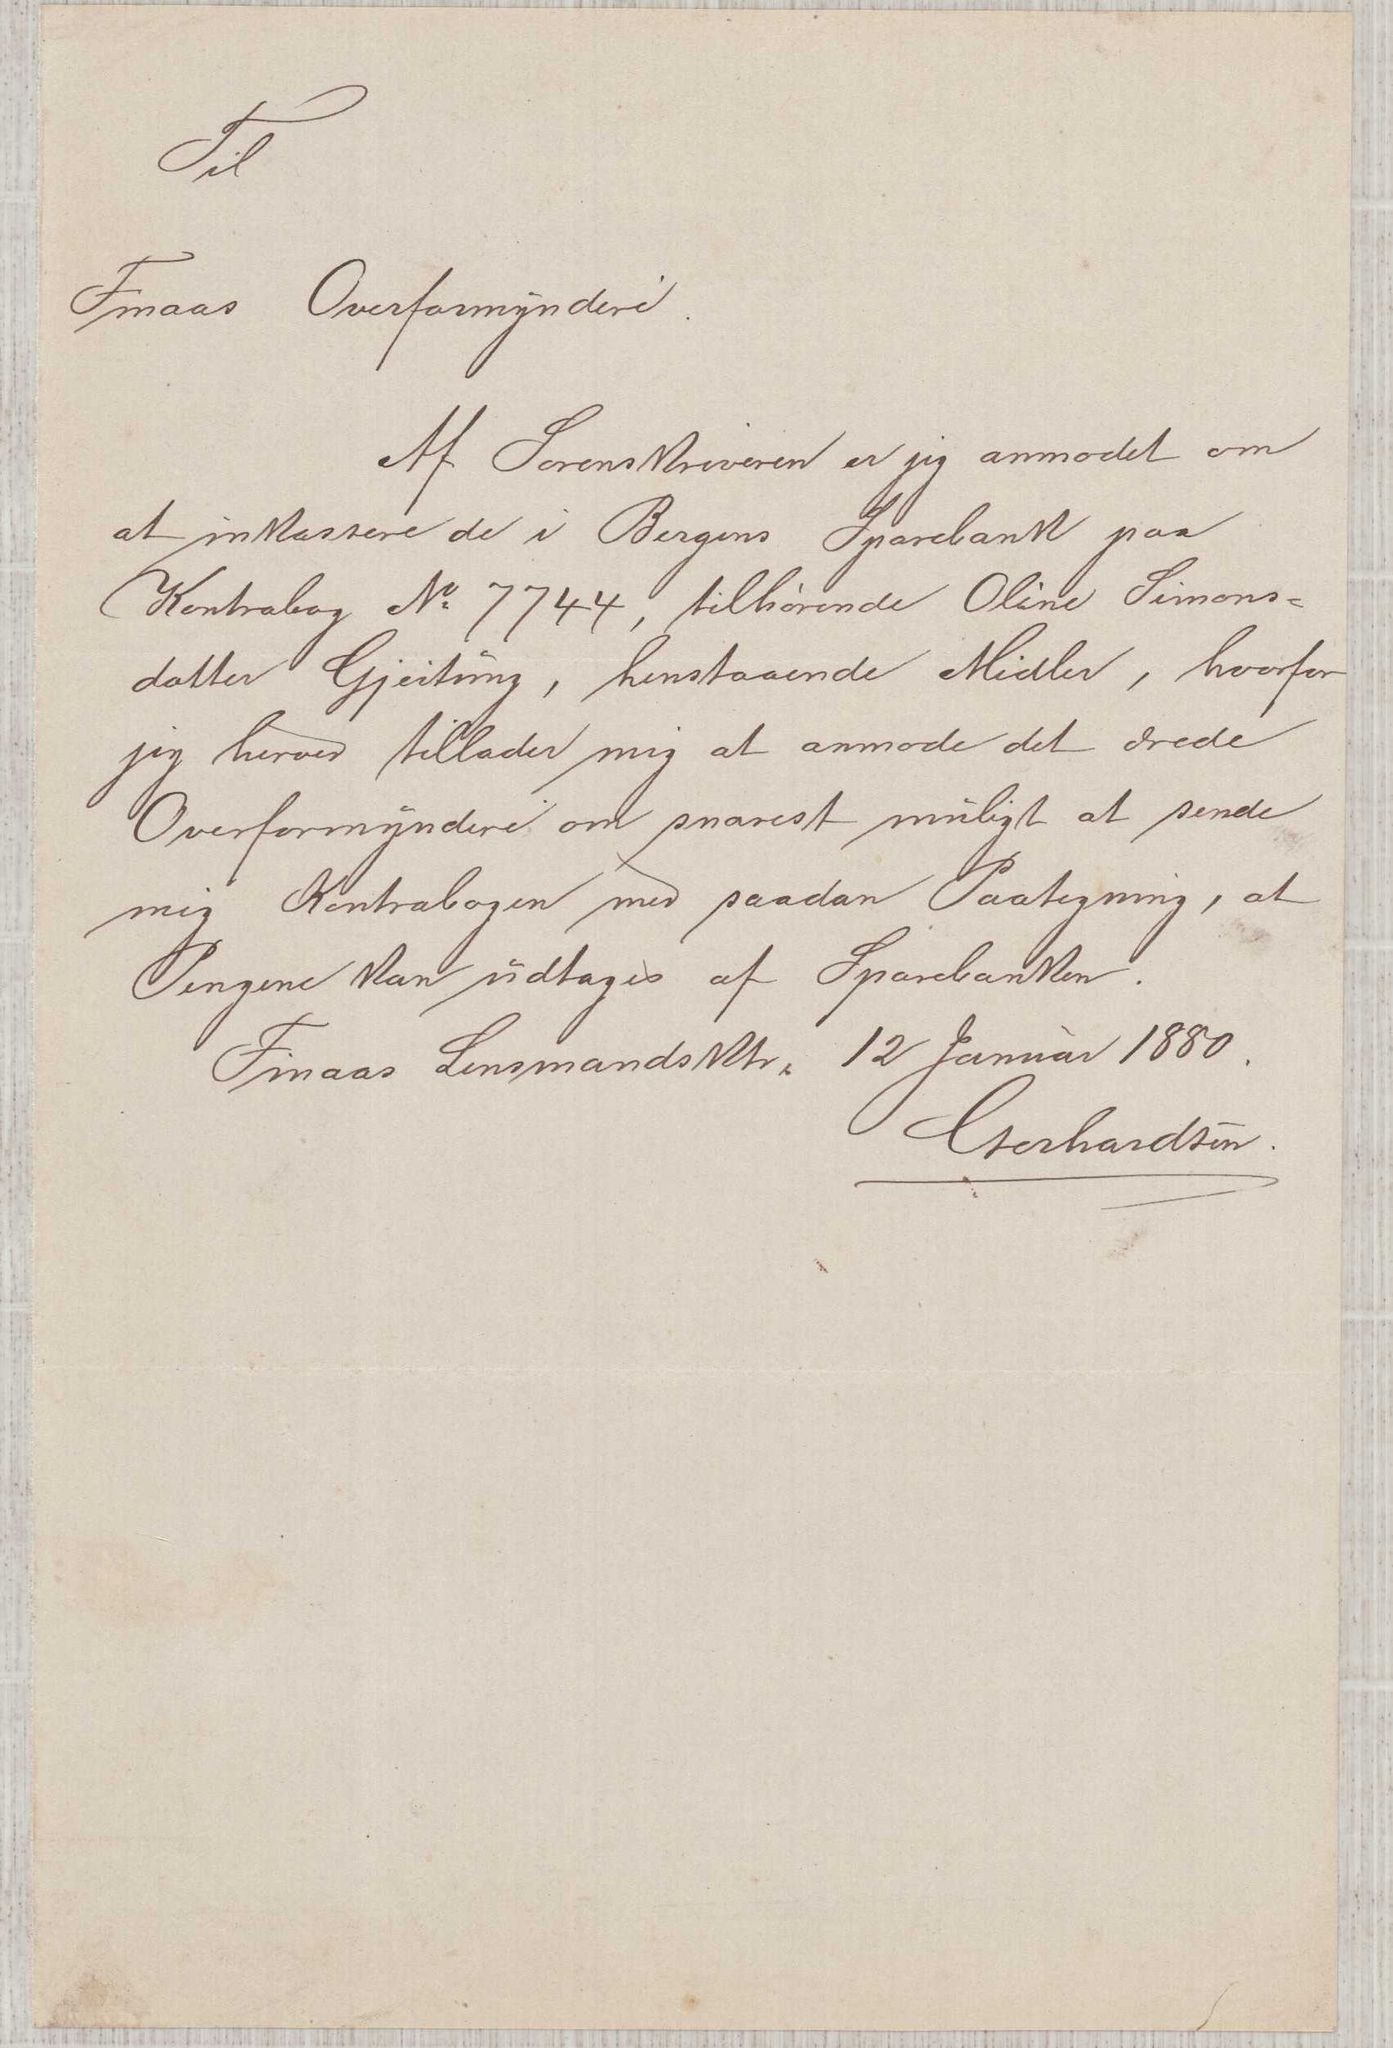 Til
Finaas Overformynderi.
Af Sorenskriveren er jeg anmodet om
at inkassere de i Bergens Sparebank paa
Kontrabog No. 7744, tilhørende Oline Simons=
datter Gjeitung, henstaaende Midler, hvorfor
jeg herved tillader mig at anmode det ærede
Overformynderi om snarest muligt at sende
mig Kontrabogen med saadan Paategning, at
Pengene kan udtages af Sparebanken.
Finaas Lensmandsktr. 12 Januar 1880.
Gerhardsen.